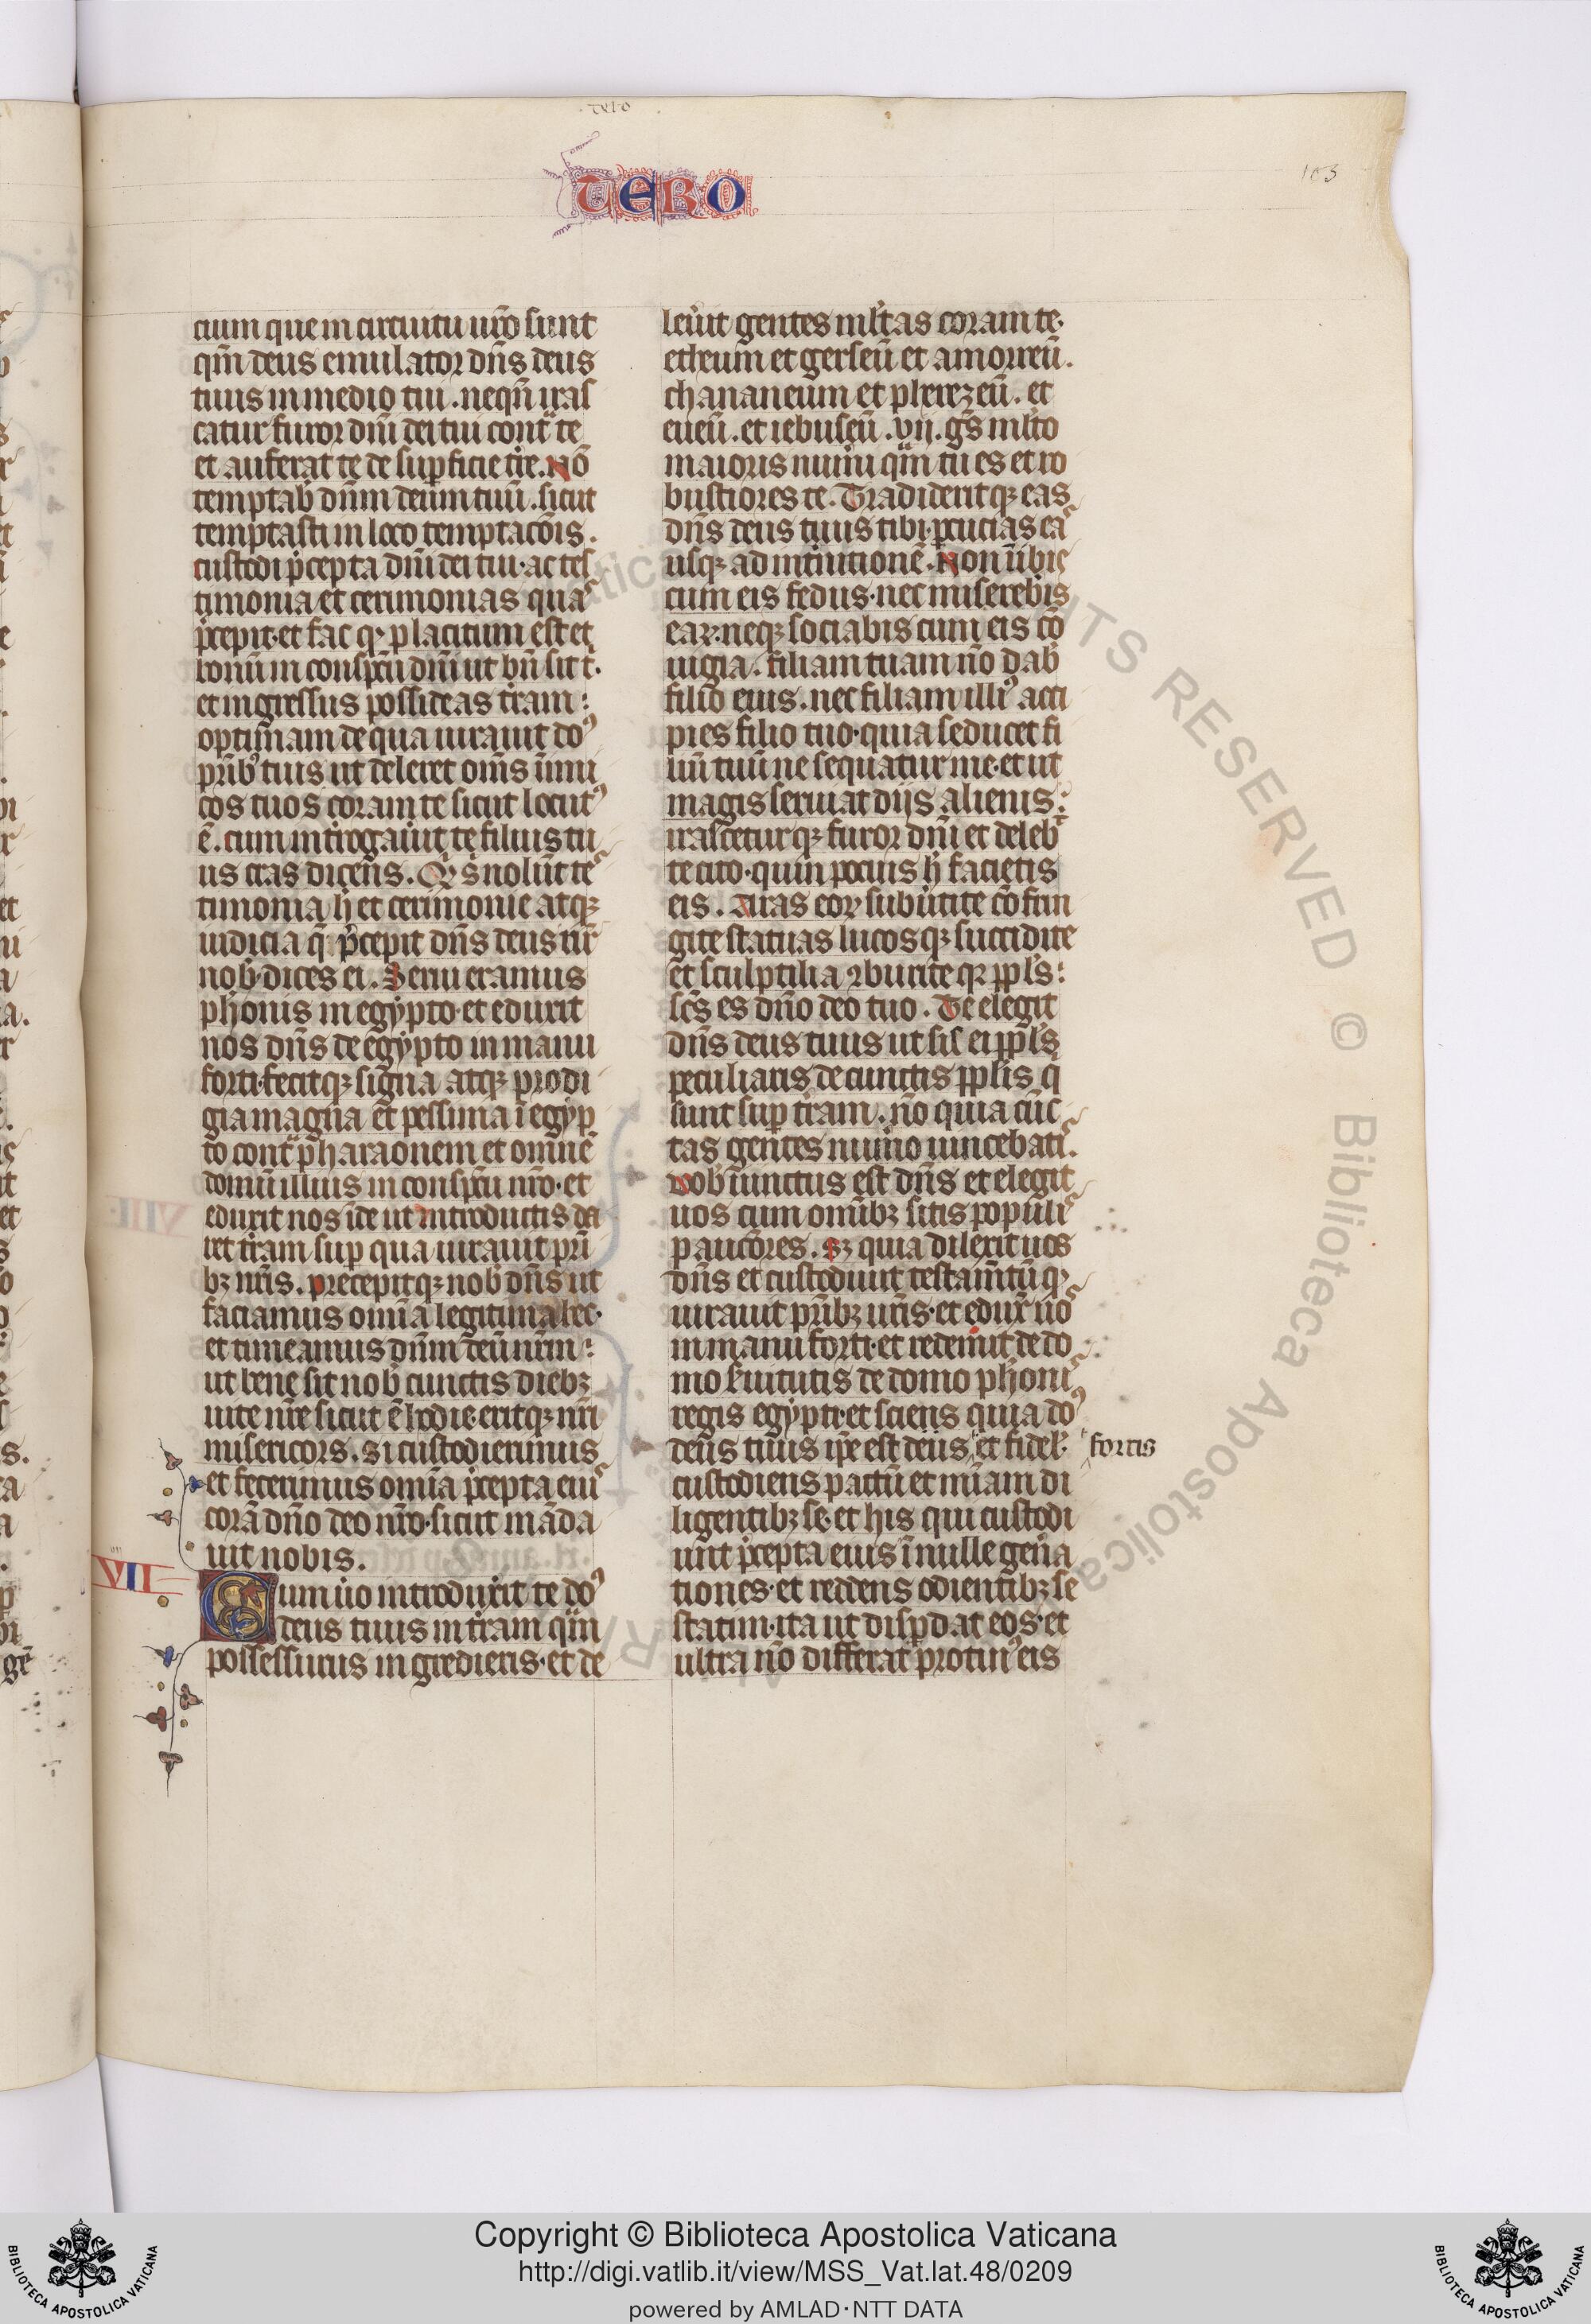 tero
TERO
103
cium que in circuitu ur̄o sunt
qm̄ deus emulator dn̄s deus
tuus in medio tui. neqn̄ iras
catur furor dn̄i dei tui contͣ te
et auferat te de suꝑficie tr̄e. Nō
temptab̄ dn̄m deum tuū. sicut
temptasti in loco temptacōis.
custodi p̄cepta dn̄i dei tui. ac tes
timonia et cerimonias quas
p̄cepit. et fac qꝫ placitum est et
bonū in conspc̄u dn̄i ut bn̄ sit t̄.
et ingressus possideas tr̄am
optimam de qua iurauit do9
pr̄ib9 tuis ut deleret om̄s inimi
cos tuos coram te sicut locut9
ē. cum int̄rogauit te filius tu
us cras dicens. Qͥ s̄ nolūt tes
timonia h̄ et cerimonie atqꝫ
iudicia q̄ p̄cepit dn̄s deus nr̄
nob̄. dices ei. Serui eramus
ph̄onis in egypto. et eduxit
nos dn̄s de egypto in manu
forti. fecitqꝫ signa atqꝫ prodi
gia magna et pessima ī egyp
to contͣ pharaonem et omnē
domū illius in conspc̄u nr̄o. et
eduxit nos īde ut introductis da
ret tr̄am suꝑ qua iurauit pr̄i
bꝫ nr̄is. precepitqꝫ nob̄ dn̄s ut
faciamus omīa legitima hec.
et timeamus dn̄m deū nr̄m
ut bene sit nob̄ cunctis diebꝫ
uite nr̄e sicut ē hodie. eritqꝫ nr̄i
misericors. si custodierimus
et fecerimus omīa p̄cepta eius
corā dn̄o deo nr̄o. sicut māda
uit nobis.
VII
Cum u̇o introduxit te do9
deus tuus in tr̄am qͣm
possessurus ingredieris. et de
leuīt gentes ml̄tas coram te.
etheum et gerseū et amorreū.
chananeum et pherezeū. et
eueū. et iebuseū. vii. gn̄s ml̄to
maioris num̄i qͣm tu es et ro
bustiores te. Tradideritqꝫ eas
dn̄s deus tuus tibi. ꝑcucias eas
usqꝫ ad int̄nitionē. Non inibis
cum eis fedus. nec misereb̄is
earꝝ. neqꝫ sociabis cum eis cō
iugia. filiam tuam nō dab̄
filio eius. nec filiam illi9 acci
pies filio tuo. quia seducet fi
liū tuū ne sequatur me. et ut
magis seruiat diis alienis
irasceturqꝫ furor dn̄i et delebͭ
te cito. quin pocius h̄ facietis
eis. Aras eoꝝ subūtite cōfrin
gite statuas lucosqꝫ succidite
et sculptilia ꝯburiteqꝫ ppl̄s
sc̄s es dn̄o deo tuo. Te elegit
dn̄s deus tuus ut sis ei ppl̄s
peculiaris de cunctis ppl̄is q̄
sunt suꝑ tr̄am. nō quia cūc
tas gentes num̄o uincebatis.
vob̄ iunctus est dn̄s et elegit
uos cum omībꝫ sitis populis
pauciores. sꝫ quia dilexit uos
dn̄s et custodiuit testam̄tū qꝫ
iurauit pr̄ibꝫ ur̄is. et eduxͭ uos
in manu forti. et redemit de do
mo s̄uitutis de domo ph̄onis
regis egypti. et sciens quia do9
deus tuus ip̄e est deus et fidel̄.
fortis
custodiens pactū et mīam di
ligentibꝫ se. et his qui custodi
unt p̄cepta eius ī mille gen̄a
tiones. et reddens odientibꝫ se
statim. ita ut disꝑdat eos. et
ultra nō differat protin9 eis
VATICANA
RIGHTS RESERVED © Biblioteca Apostolica
BIBLIOTECA APOSTOLICA VATICANA
Copyright © Biblioteca Apostolica Vaticana
http://digi.vatlib.it/view/MSS_Vat.lat.48/0209
powered by AMLAD·NTT DATA
BIBLIOTECA APOSTOLICA VATICANA